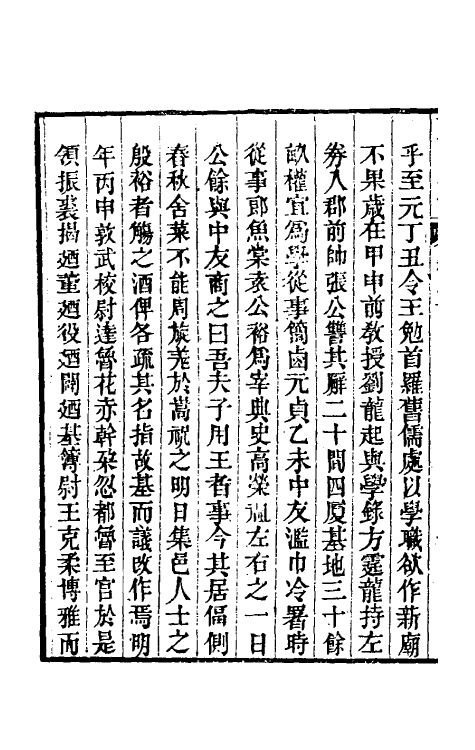 乎至元丁丑令王勉首羅舊儒處以學職欲作新廟
不果歲在甲申前教授劉龍起與學錄方霆龍持左
券入郡前帥張公讐其廨二十間四厦基地三十餘
畝權宜爲學從事簡鹵元貞乙未中友濫巾冷署時
從事郎魚棠袁公裕爲宰與史高榮祖左右之一日
公餘與中友商之曰吾夫子用王者事今其居偪側
春秋舍菜不能周旋羌於嵩祝之明日集邑人士之
殷裕者觴之酒俾各疏其名指故基而議改作焉明
年丙申敦武校尉達魯花赤幹朶忽都魯至官於是
領振裘揭廼董廼役廼闢廼基簿尉王克柔博雅而